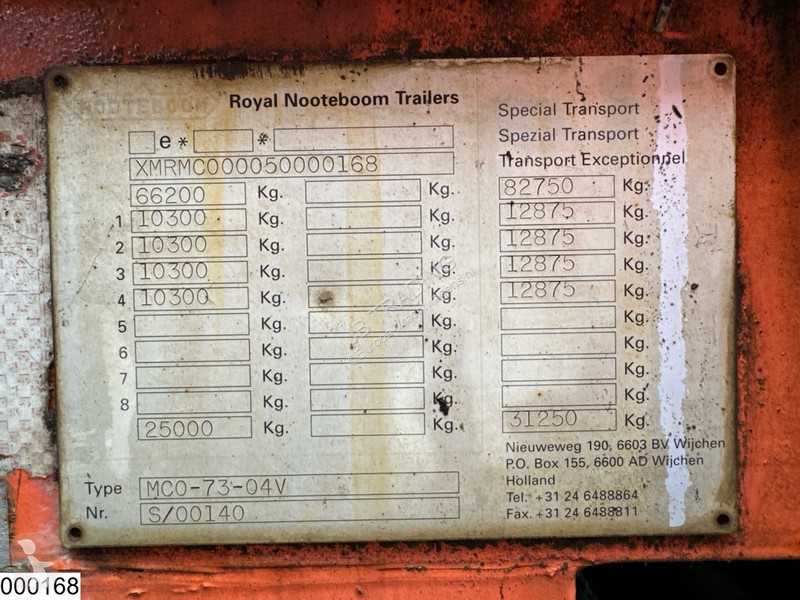 Royal Nooteboom Trailers
Special Transport
Spezial Transport
Transport Exceptionnel
e* *
XMRMC000050000168
66200 Kg. Kg. 82750 Kg.
1 10300 Kg. Kg. 12875 Kg.
2 10300 Kg. Kg. 12875 Kg.
3 10300 Kg. Kg. 12875 Kg.
4 10300 Kg. Kg. 12875 Kg.
5 Kg. Kg. Kg.
6 Kg. Kg. Kg.
7 Kg. Kg. Kg.
8 Kg. Kg. Kg.
25000 Kg. Kg. 31250 Kg.
Type MCO-73-04V
Nr. S/00140
Nieuweweg 190, 6603 BV Wijchen
P.O. Box 155, 6600 AD Wijchen
Holland
Tel. +31 24 6488864
Fax. +31 24 6488811
000168